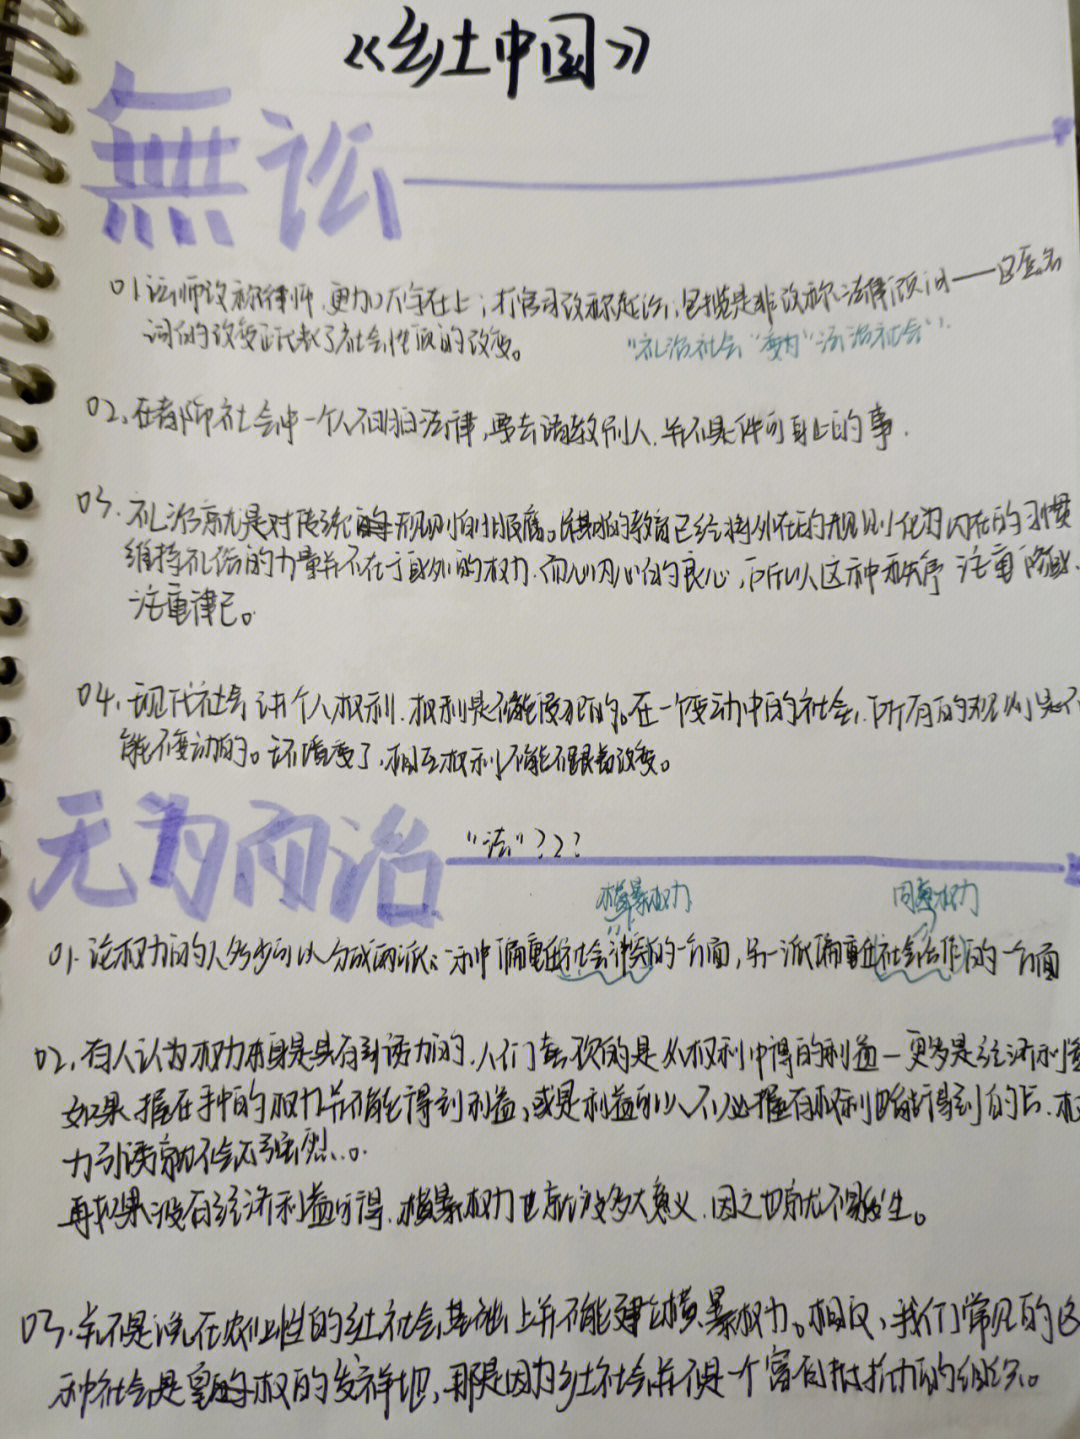 《乡土中国》
無讼
01 讼师改称律师,更加大字在上;打官司改称起诉;包揽是非改称法律顾问——这套名
词的改变正代表了社会性质的改变。 "礼治社会"变为"法治社会".
02.在都市社会中一个人不明白法律,要去请教别人,并不是件可耻的事.
03.礼治就是对传统规则的服膺。长期的教育已经将外在的规则化为内在的习惯
维持礼俗的力量并不在于身外的权力,而从内心的良心,所以这种秩序 注重
注重律己。
04.现代社会讲个人权利,权利是不能侵犯的。在一个变动中的社会,所有的规则是不
能不变动的。环境变了,相互权利不能不跟着改变。
无为而治
"法"???
横暴权力 同意权力
01.论权力的人多少可以分成两派:一种偏重在社会冲突的一方面,另一派偏重在社会合作的一方面
02.有人认为权力本身是具有引诱力的,人们喜欢的是从权利中得的利益—更多是经济利益
如果握在手中的权力并不能得到利益,或是利益可以不必握有权利也能得到的后,权
力引诱就不会太强烈...。
再如果没有经济利益可得,横暴权力也就没多大意义,因之也就不易发生。
03.并不是说在农业性的乡土社会基础上并不能建立横暴权力。相反,我们常见的这
种社会是皇权的发祥地,那是因为乡土社会并不是一个富有抵抗力的组织。